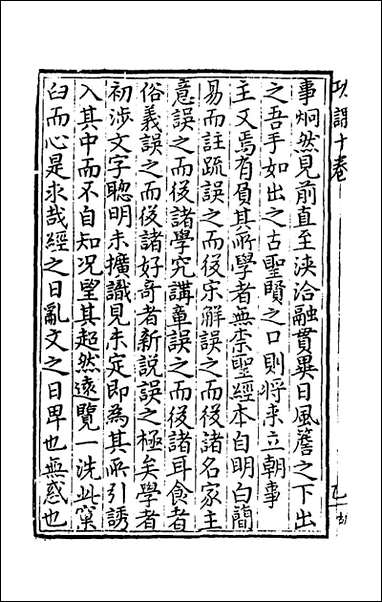 功課十卷
事炯然見前直至浹洽融貫異日風簷之下出
之吾手如出之古聖賢之口則將来立朝事
主又焉有負其所學者無柰聖經本自明白簡
易而註疏誤之而後宋解誤之而後諸名家主
意誤之而後諸學究講章誤之而後諸耳食者
俗義誤之而後諸好奇者新説誤之極矣學者
初涉文字聰明未擴識見未定即為其所引誘
入其中而不自知况望其超然遠覽一洗此窠
臼而心是求哉經之日亂文之日卑也無惑也